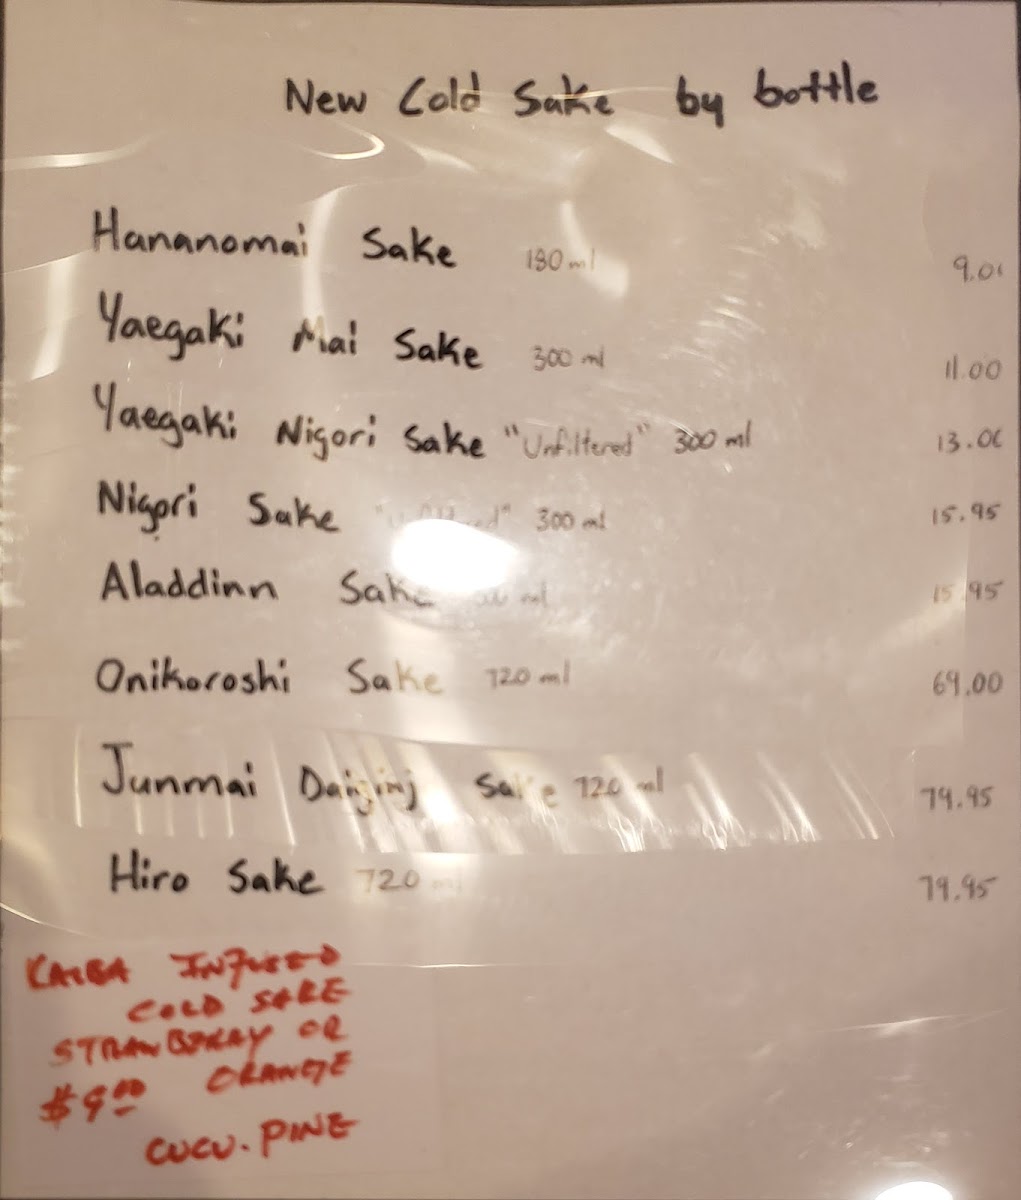 New Cold Sake by bottle
Hananomai Sake 180 ml 9.00
Yaegaki Mai Sake 300 ml 11.00
Yaegaki Nigori Sake "Unfiltered" 300 ml 13.00
Nigori Sake 300 ml 15.95
Aladdinn Sake ml 15.95
Onikoroshi Sake 720 ml 69.00
Junmai Daiginj Sake 720 ml 79.95
Hiro Sake 720 ml 79.95
INFUSED
COLD SAKE
STRAWBERAY OR
$9.00 ORANGE
CUCU. PINE